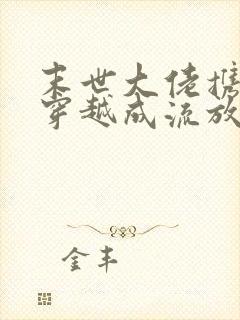 末世大佬携
穿越成流放
金丰